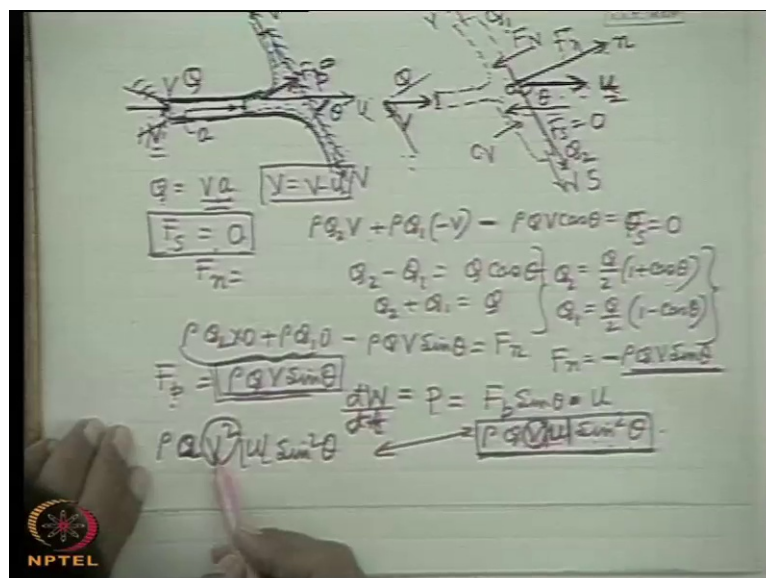 V Q
a
Q
Q₁
Fₙ
n
u
θ
Q₂
S
CV
Q = Va
V = V-u
Fₛ = 0
Fₛ = 0
ρQ₂V + ρQ₁(-V) - ρQVcosθ = Fₛ = 0
Fₙ =
Q₂ - Q₁ = Q cosθ
Q₂ = Q/2 (1+cosθ)
Q₂ + Q₁ = Q
Q₁ = Q/2 (1-cosθ)
ρQ₂×0 + ρQ₁0 - ρQVsinθ = Fₙ
Fₙ = -ρQVsinθ
Fₚ = ρQVsinθ
dW/dt = P = F_b sinθ · u
ρQ V² u sin²θ
ρQ V u sin²θ
NPTEL